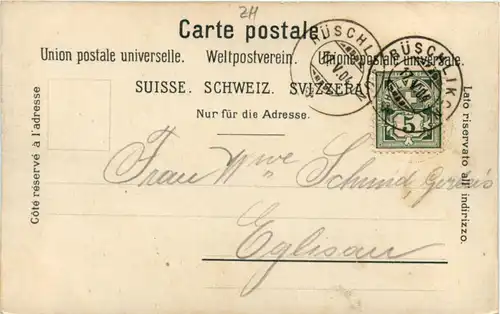 ZH
Carte postale.
Union postale universelle. Weltpostverein. Unione postale universale.
SUISSE. SCHWEIZ. SVIZZERA.
Nur für die Adresse.
Côté réservé à l'adresse
Lato riservato all'indirizzo.
RÜSCHLIKON
V.04
RÜSCHLIKON
V.04
5
Frau Wwe Schmid,
Eglisau